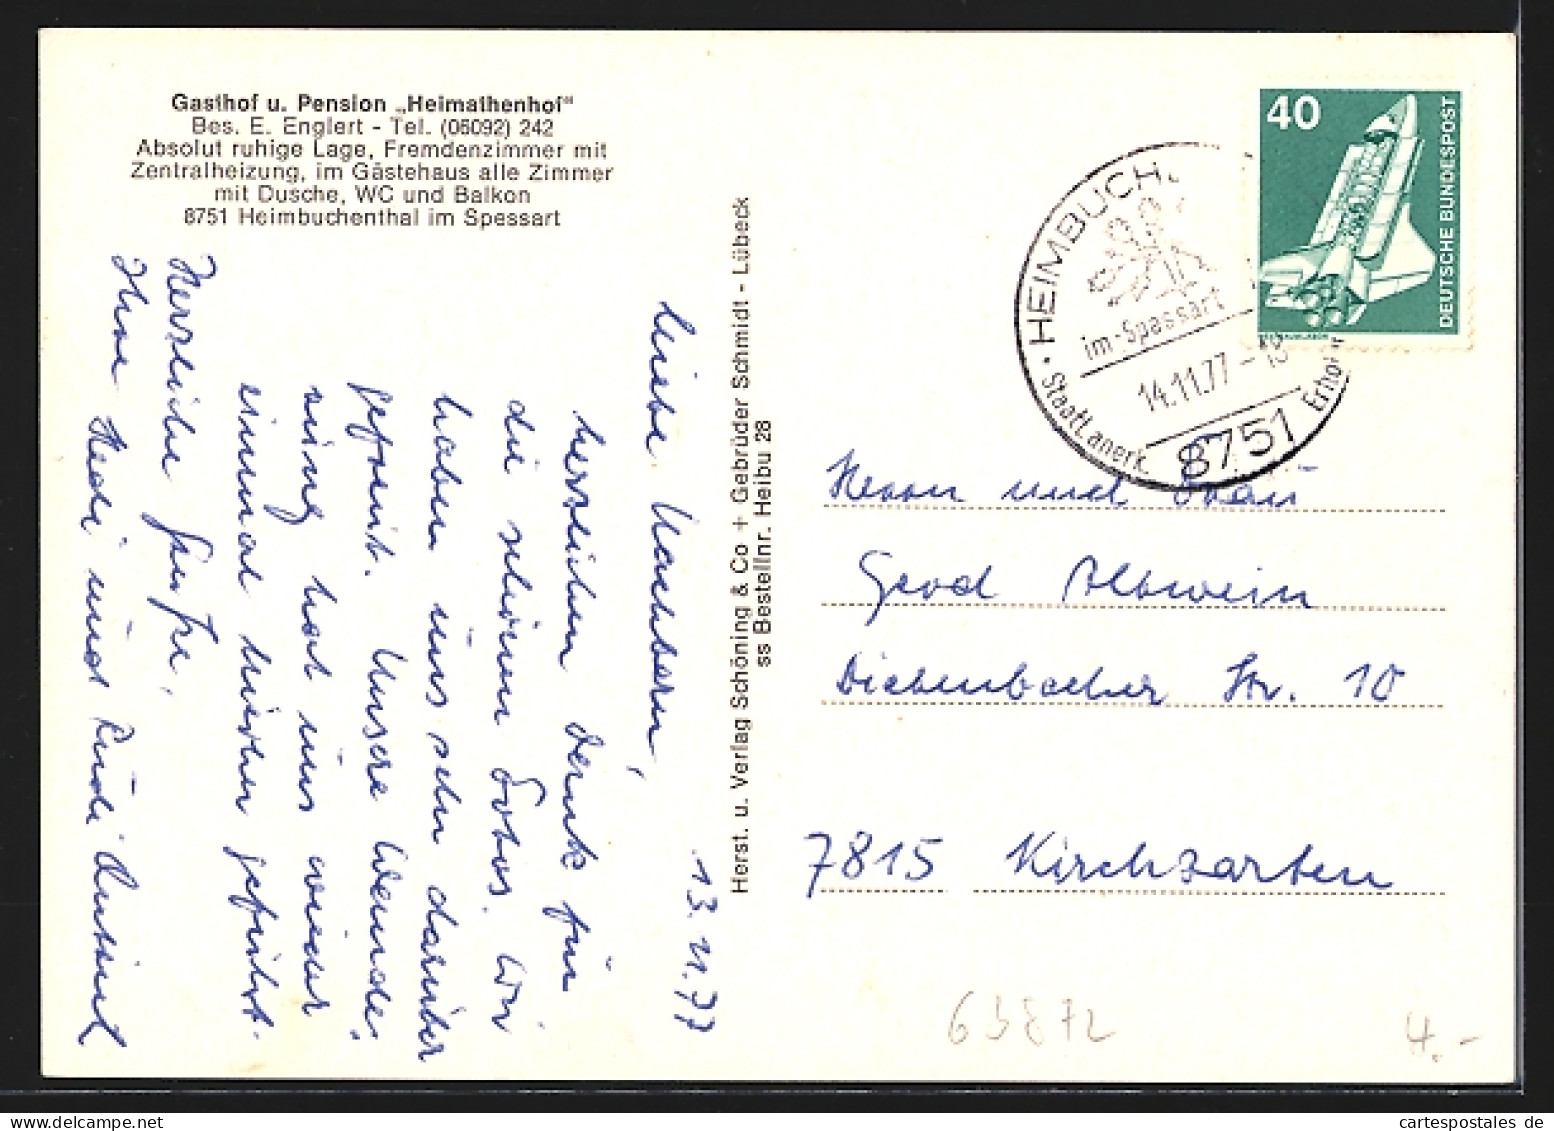 Gasthof u. Pension „Heimathenhof"
Bes. E. Englert - Tel. (06092) 242
Absolut ruhige Lage, Fremdenzimmer mit
Zentralheizung, im Gästehaus alle Zimmer
mit Dusche, WC und Balkon
8751 Heimbuchenthal im Spessart
13.11.77
Liebe Nachbarn,
herzlichen Dank für
die schönen Fotos. Wir
haben uns sehr darüber
gefreut. Unsere Wande-
ring hat uns wieder
einmal hierher geführt.
Herzliche Grüße,
Ihre Hedi und Rudi
Herst. u. Verlag Schöning & Co + Gebrüder Schmidt - Lübeck
ss Bestellnr. Heibu 28
40
DEUTSCHE BUNDESPOST
· HEIMBUCH
im-Spessart
14.11.77-18
8751
Staatl. anerk. Erhol
Herrn und Frau
Gerd
Dietenbacher Str. 10
7815 Kirchzarten
63872
4.-
cartespostales de